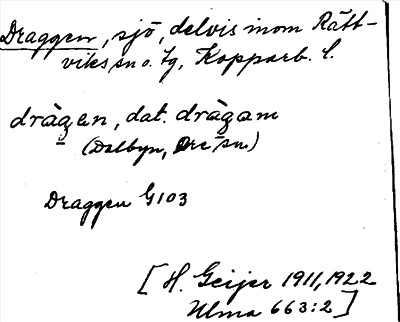 Draggen, sjö, delvis inom Rätt-
viks sn o. tg, Kopparb. l.
dràgen, dat. dràgam
(Dalbyn, Ore sn.)
Draggen G103
[H. Geijer 1911, 1922
Ulma 663:2]